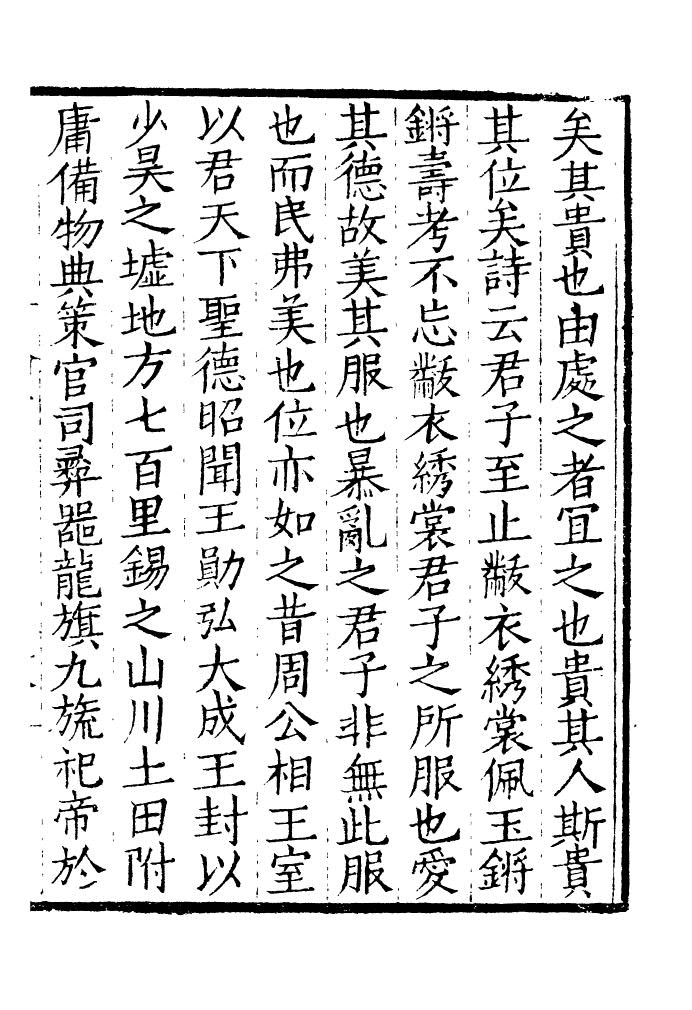 矣其貴也由處之者冝之也貴其人斯貴
其位矣詩云君子至止黻衣綉裳佩玉鏘
鏘壽考不忘黻衣綉裳君子之所服也愛
其德故美其服也暴亂之君子非無此服
也而民弗美也位亦如之昔周公相王室
以君天下聖德昭聞王勛弘大成王封以
少昊之墟地方七百里錫之山川土田附
庸備物典策官司彞噐龍旗九旒祀帝於